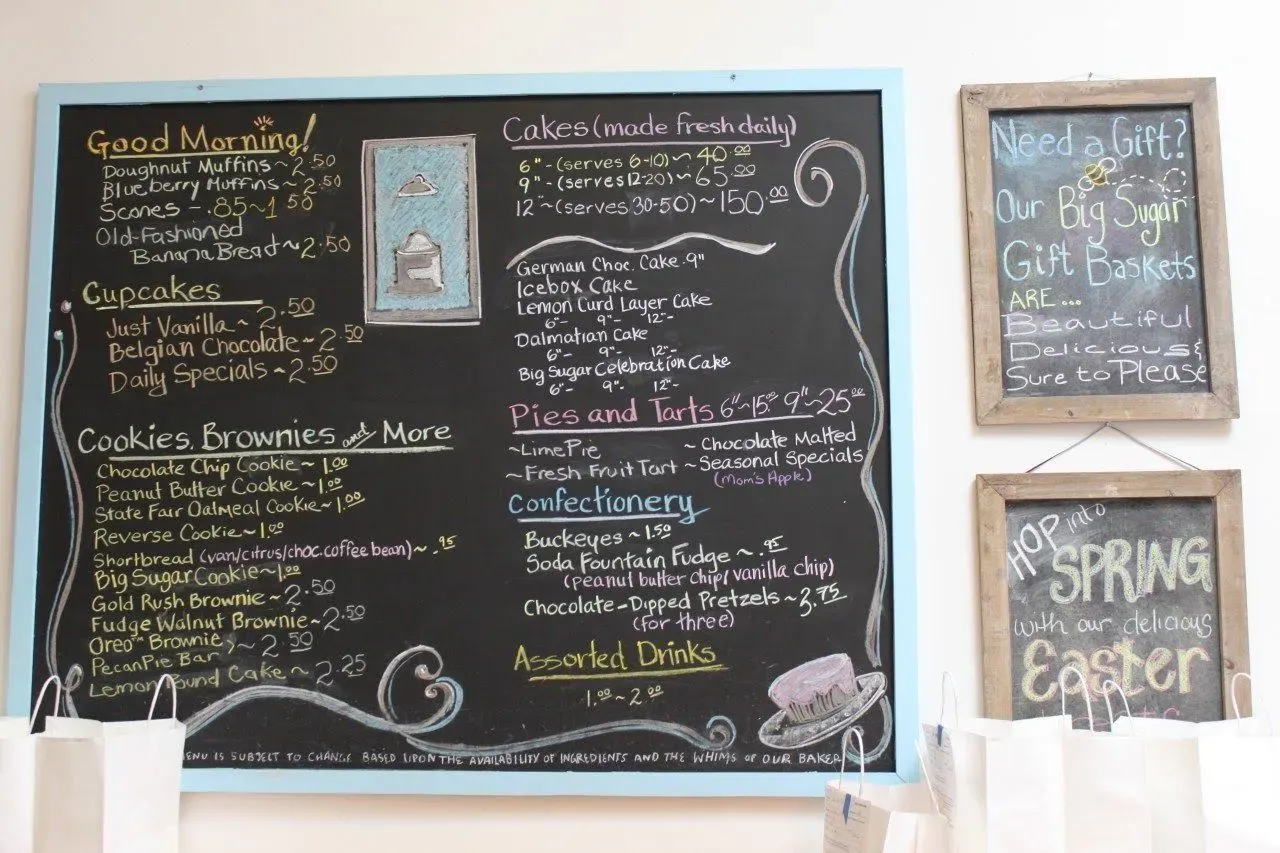 Good Morning!
Doughnut Muffins ~ 2.50
Blueberry Muffins ~ 2.50
Scones - .85 ~ 1.50
Old-Fashioned
Banana Bread ~ 2.50
Cupcakes
Just Vanilla ~ 2.50
Belgian Chocolate ~ 2.50
Daily Specials ~ 2.50
Cookies, Brownies and More
Chocolate Chip Cookie ~ 1.00
Peanut Butter Cookie ~ 1.00
State Fair Oatmeal Cookie ~ 1.00
Reverse Cookie ~ 1.00
Shortbread (van/citrus/choc.coffee bean) ~ .95
Big Sugar Cookie ~ 1.00
Gold Rush Brownie ~ 2.50
Fudge Walnut Brownie ~ 2.50
Oreo™ Brownie
PecanPie Bar } ~ 2.50
Lemon Pound Cake ~ 2.25
Cakes (made fresh daily)
6" - (serves 6-10) ~ 40.00
9" - (serves 12-20) ~ 65.00
12" ~ (serves 30-50) ~ 150.00
German Choc. Cake - 9"
Icebox Cake
Lemon Curd Layer Cake
6"- 9"- 12"-
Dalmatian Cake
6"- 9"- 12"-
Big Sugar Celebration Cake
6"- 9"- 12"-
Pies and Tarts 6"~15.00 9"~25.00
~ Lime Pie
~ Fresh Fruit Tart
~ Chocolate Malted
~ Seasonal Specials
(Mom's Apple)
Confectionery
Buckeyes ~ 1.50
Soda Fountain Fudge ~ .95
(peanut butter chip/vanilla chip)
Chocolate-Dipped Pretzels ~ 3.75
(for three)
Assorted Drinks
1.00 ~ 2.00
ENU IS SUBJECT TO CHANGE BASED UPON THE AVAILABILITY OF INGREDIENTS AND THE WHIMS OF OUR BAKER
Need a Gift?
Our Big Sugar
Gift Baskets
ARE ...
Beautiful
Delicious &
Sure to Please
HOP into
SPRING
with our delicious
Easter